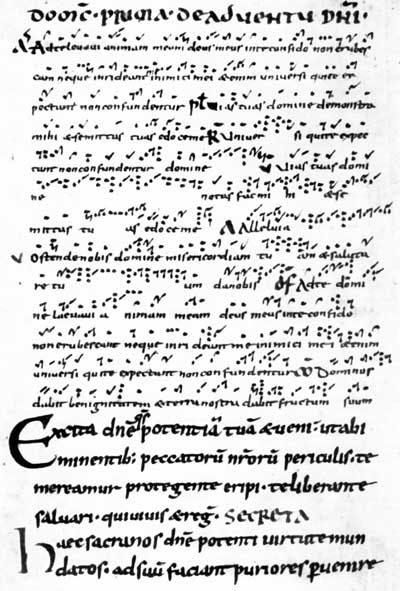 DOMIC · PRIMA · DE ADVENTU DNI ·
Ad te levavi animam meum deus meus in te confido non erubes
cam neque inrideant inimici mei & enim universi qui te ex
pectant non confundentur Ps Vias tuas domine demonstra
mihi & semittas tuas edoce me R Univer si qui te expec
tant non confundentur domine V Vias tuas domi
ne notas fac mi hi & se
mittas tu as edoce me Alleluia
V Ostende nobis domine misericordiam tu am & saluta
re tu um da nobis Of Ad te domi
ne levavi a nimam meam deus meus in te confido
non erubescant neque inrideant me inimici mei & enim
universi qui te expectant non confundentur CO Dominus
dabit benignitatem & terra nostra dabit fructum suum
Excita dne qs potentiā tuā & veni · ut ab i
minentib; peccatorū nrorum periculis · te
mereamur protegente eripi · te liberante
salvari · qui vivis & reg · SECRETA
Haec sacra nos dne potenti virtute mun
datos · ad suū faciant puriores pvenire